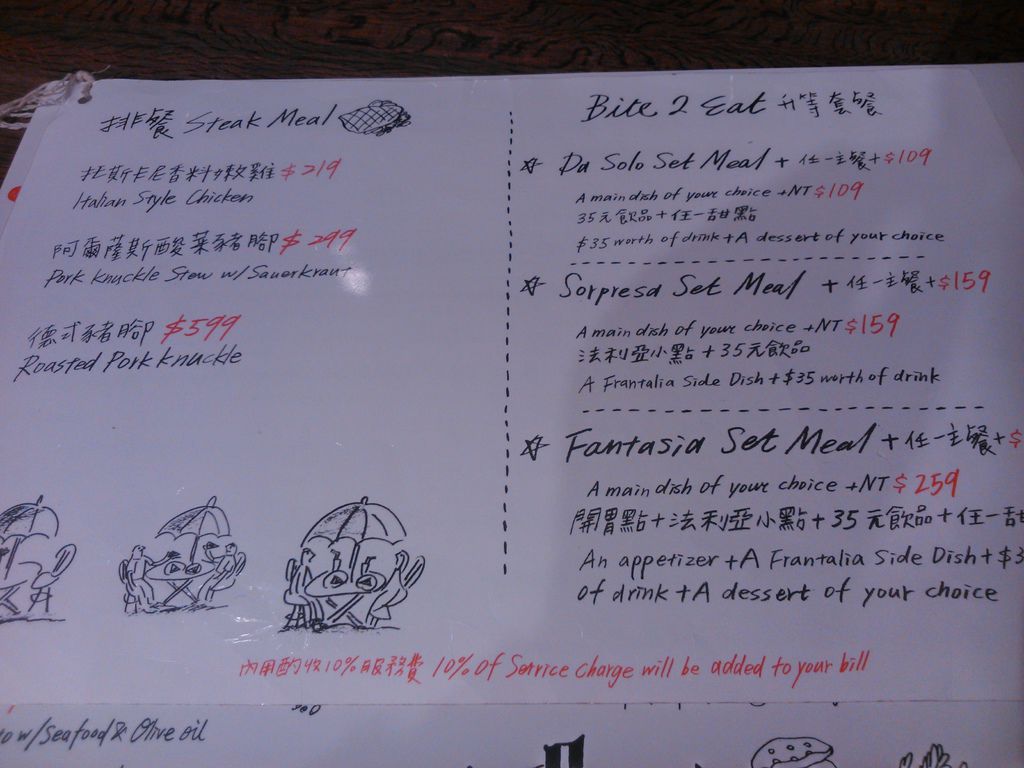 排餐 Steak Meal
托斯卡尼香料嫩雞 $219
Italian Style Chicken
阿爾薩斯酸菜豬腳 $299
Pork Knuckle Stew w/ Sauerkraut
德式豬腳 $599
Roasted Pork Knuckle
Bite 2 Eat 升等套餐
☆ Da Solo Set Meal + 任一主餐 + $109
A main dish of your choice + NT $109
35元飲品 + 任一甜點
$35 worth of drink + A dessert of your choice
☆ Sorpresa Set Meal + 任一主餐 + $159
A main dish of your choice + NT $159
法利亞小點 + 35元飲品
A Frantalia Side Dish + $35 worth of drink
☆ Fantasia Set Meal + 任一主餐 + $
A main dish of your choice + NT $259
開胃點 + 法利亞小點 + 35元飲品 + 任一甜
An appetizer + A Frantalia Side Dish + $3
of drink + A dessert of your choice
內用酌收10%服務費 10% of Service charge will be added to your bill
w/ Seafood & Olive oil